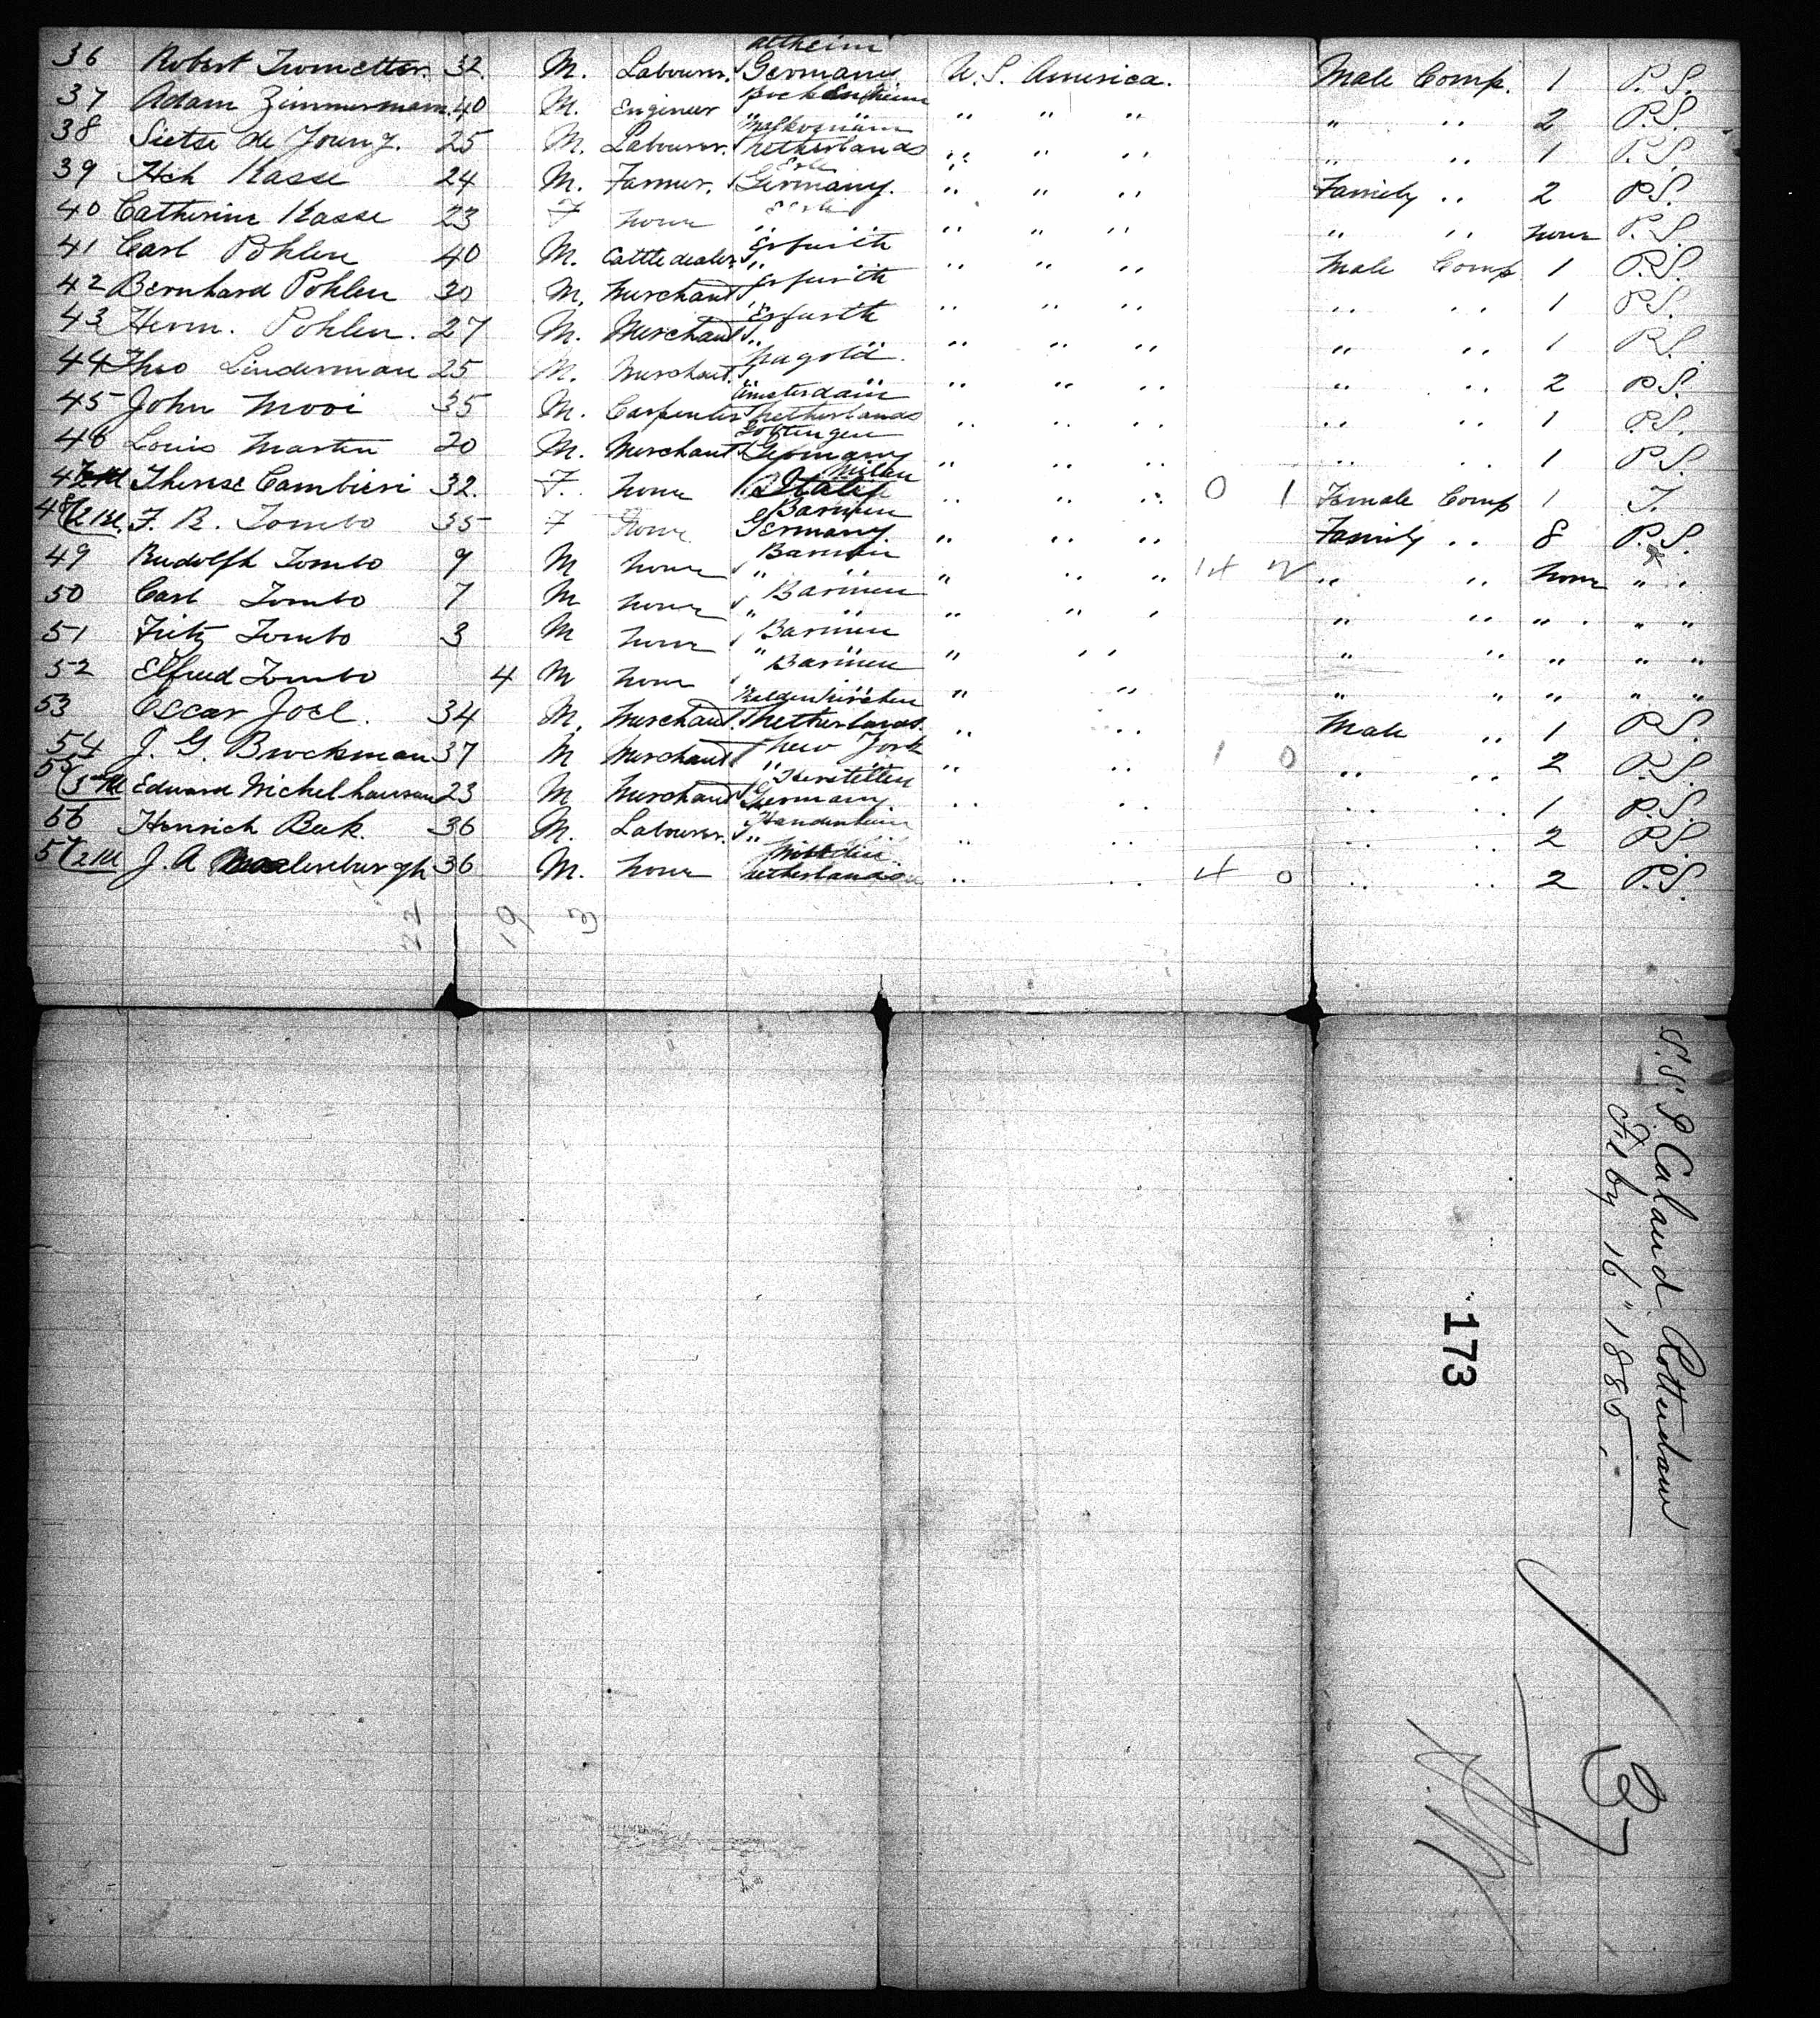 36 Robert Trometter. 32. M. Labourer. Altheim Germany U. S. America. Male Comp. 1 P. S.
37 Adam Zimmermann. 40 M. Engineer " Bockenheim " " " " " 2 P.S.
38 Sietse de Joung. 25 M. Labourer. Netherlands " " " " " 1 P.S.
39 Hch Kasse 24 M. Farmer. Erle Germany. " " " Family " 2 P.S.
40 Catherine Kasse 23 F none " Erle " " " " " none P.S.
41 Carl Pohlen 40 M. Cattledealer " Erfurth " " " Male Comp 1 P.S.
42 Bernhard Pohlen 30 M. Merchant " Erfurth " " " " " 1 P.S.
43 Herm. Pohlen. 27 M. Merchant " Erfurth " " " " " 1 P.S.
44 Theo Linderman 25 M. Merchant. " " " " " " 2 P.S.
45 John Mooi 35 M. Carpenter Amsterdam Netherlands " " " " " 1 P.S.
46 Louis Martin 20 M. Merchant Gottingen Germany " " " " " 1 P.S.
47 2 Kl Therese Cambieri 32. F. none Milan Italy " " " 0 1 Female Comp 1 F.
48 2 Kl. F. R. Tombo 35 F none Barmen Germany. " " " Family " 8 P.S.
49 Rudolph Tombo 9 M none " Barmen " " " 14 2 " " none " "
50 Carl Tombo 7 M none " Barmen " " " " " " " "
51 Fritz Tombo 3 M none " Barmen " " " " " " " "
52 Elfried Tombo 4 M none " Barmen " " " " " " "
53 Oscar Joel. 34 M. Merchant. Netherlands. " " Male " 1 P.S.
54 J. G. Brockman 37 M Merchant " New York " " 1 0 " " 2 P.S.
55 Edward Michelhausen 23 M Merchant Germany " " " " 1 P.S.
56 Heinrich Bek. 36 M. Labourer. " " " " " 2 P.S.
57 2 Kl J. A 36 M. none Netherlands " " 4 0 " " 2 P.S.
22 19 3
S.S. P. Caland Rotterdam
Feby 16" 1885.
173